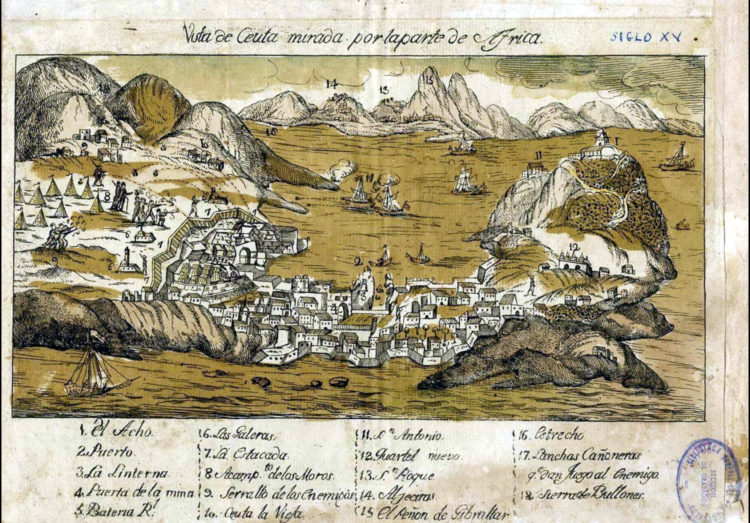 Vista de Ceuta mirada por la parte de Africa.
SIGLO XV
1. El Acho.
2. Puerto
3. La Linterna.
4. Puerta de la mina
5. Bateria Rl.
6. Las Galeras.
7. La Estacada
8. Acampto. de los Moros.
9. Serrallo de los Enemigos
10. Ceuta la Vieja
11. Sn. Antonio.
12. Quartel nuevo.
13. Sn. Roque
14. Aljeciras
15. El Peñon de Gibraltar
16. Estrecho
17. Lanchas Cañoneras
qe. dan fuego al Enemigo.
18. Sierra de Bullones.